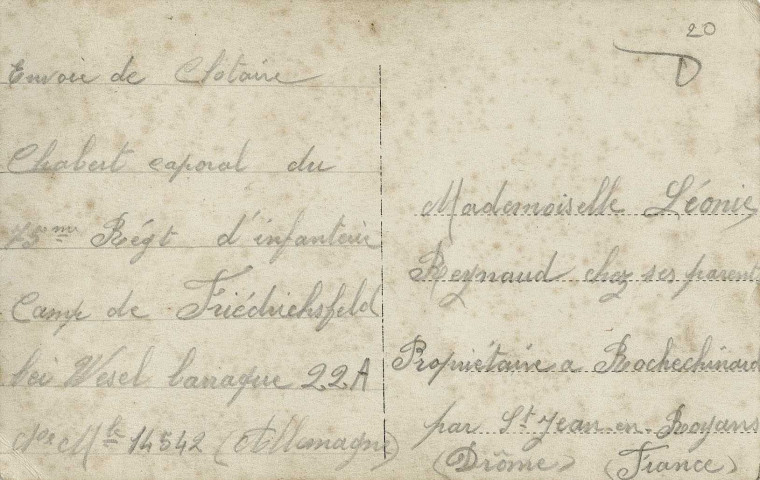 20
Envoie de Clotaire
Chabert caporal du
75ème Régt d'infanterie
Camp de Friédrichsfeld
bei Wesel baraque 22A
Nº Mle 14542 (Allemagne)
Mademoiselle Léonie
Reynaud chez ses parents
Propriétaire a Rochechinard
par St Jean-en-Royans
(Drôme) (France)